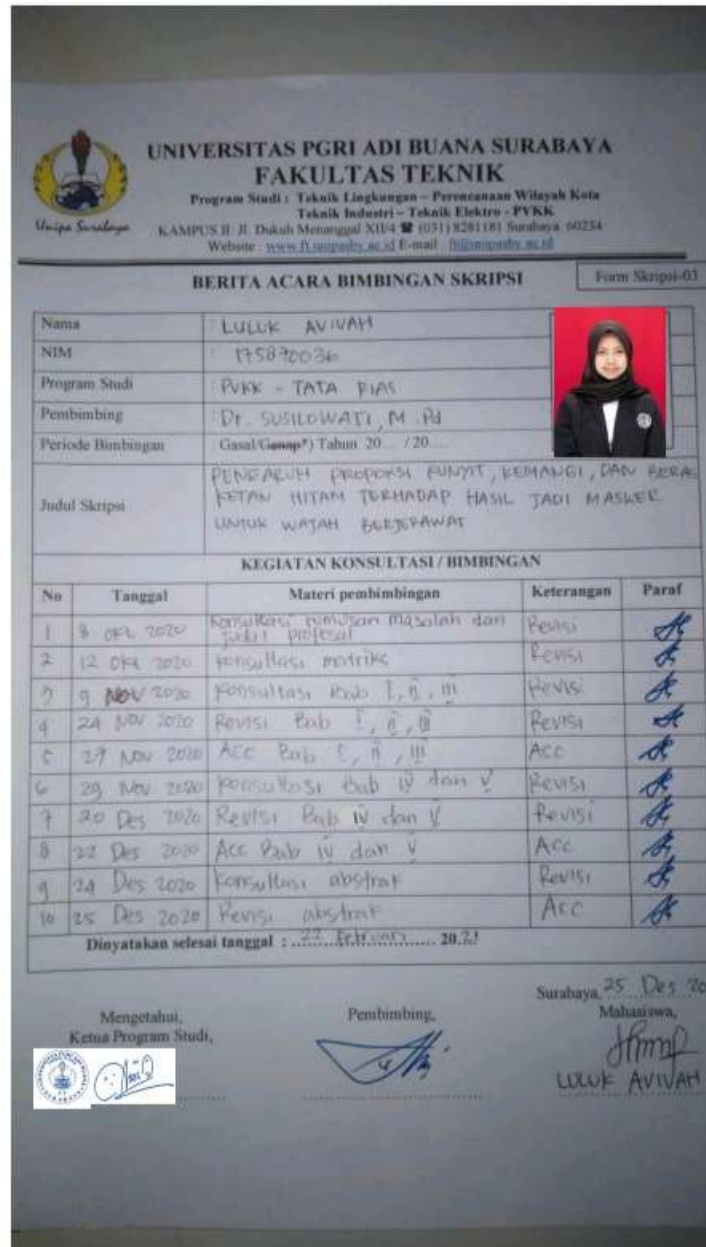 UNIVERSITAS PGRI ADI BUANA SURABAYA
FAKULTAS TEKNIK
Program Studi : Teknik Lingkungan – Perencanaan Wilayah Kota
Teknik Industri – Teknik Elektro - PVKK
Unipa Surabaya
KAMPUS II Jl. Dukuh Menanggal XII/4 ☎ (031) 8281181 Surabaya 60234
Website : www.ft.unipasby.ac.id E-mail : ft@unipasby.ac.id
BERITA ACARA BIMBINGAN SKRIPSI
Form Skripsi-03
Nama : LULUK AVIVAH
NIM : 175870036
Program Studi : PVKK - TATA RIAS
Pembimbing : Dr. SUSILOWATI, M.Pd
Periode Bimbingan : Gasal/Genap*) Tahun 20... / 20....
Judul Skripsi
PENGARUH PROPORSI KUNYIT, KEMANGI, DAN BERAS
KETAN HITAM TERHADAP HASIL JADI MASKER
UNTUK WAJAH BERJERAWAT
KEGIATAN KONSULTASI / BIMBINGAN
No Tanggal Materi pembimbingan Keterangan Paraf
1 8 Okt 2020 Konsultasi rumusan masalah dan judul proposal Revisi
2 12 Okt 2020 Konsultasi matriks Revisi
3 9 Nov 2020 Konsultasi Bab I, II, III Revisi
4 24 Nov 2020 Revisi Bab I, II, III Revisi
5 27 Nov 2020 Acc Bab I, II, III Acc
6 29 Nov 2020 Konsultasi Bab IV dan V Revisi
7 20 Des 2020 Revisi Bab IV dan V Revisi
8 22 Des 2020 Acc Bab IV dan V Acc
9 24 Des 2020 Konsultasi abstrak Revisi
10 25 Des 2020 Revisi abstrak Acc
Dinyatakan selesai tanggal : 22 Februari 2021
Surabaya, 25 Des 20
Mengetahui,
Ketua Program Studi,
Pembimbing,
Mahasiswa,
LULUK AVIVAH